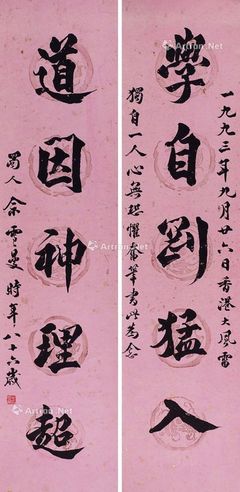 一九九三年九月廿六日香港大風雷
學自剛猛入
獨自一人心無恐懼奮筆書此為念
道因神理超
蜀人余雪曼時年八十六歲
Artron.Net
Artron.Net
Artron.Net